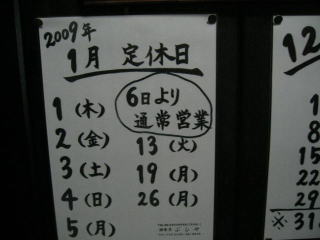 2009年
1月 定休日
6日より
通常営業
1(木)
2(金)
3(土)
4(日)
5(月)
13(火)
19(月)
26(月)
12
1
8
15
22
29
※31